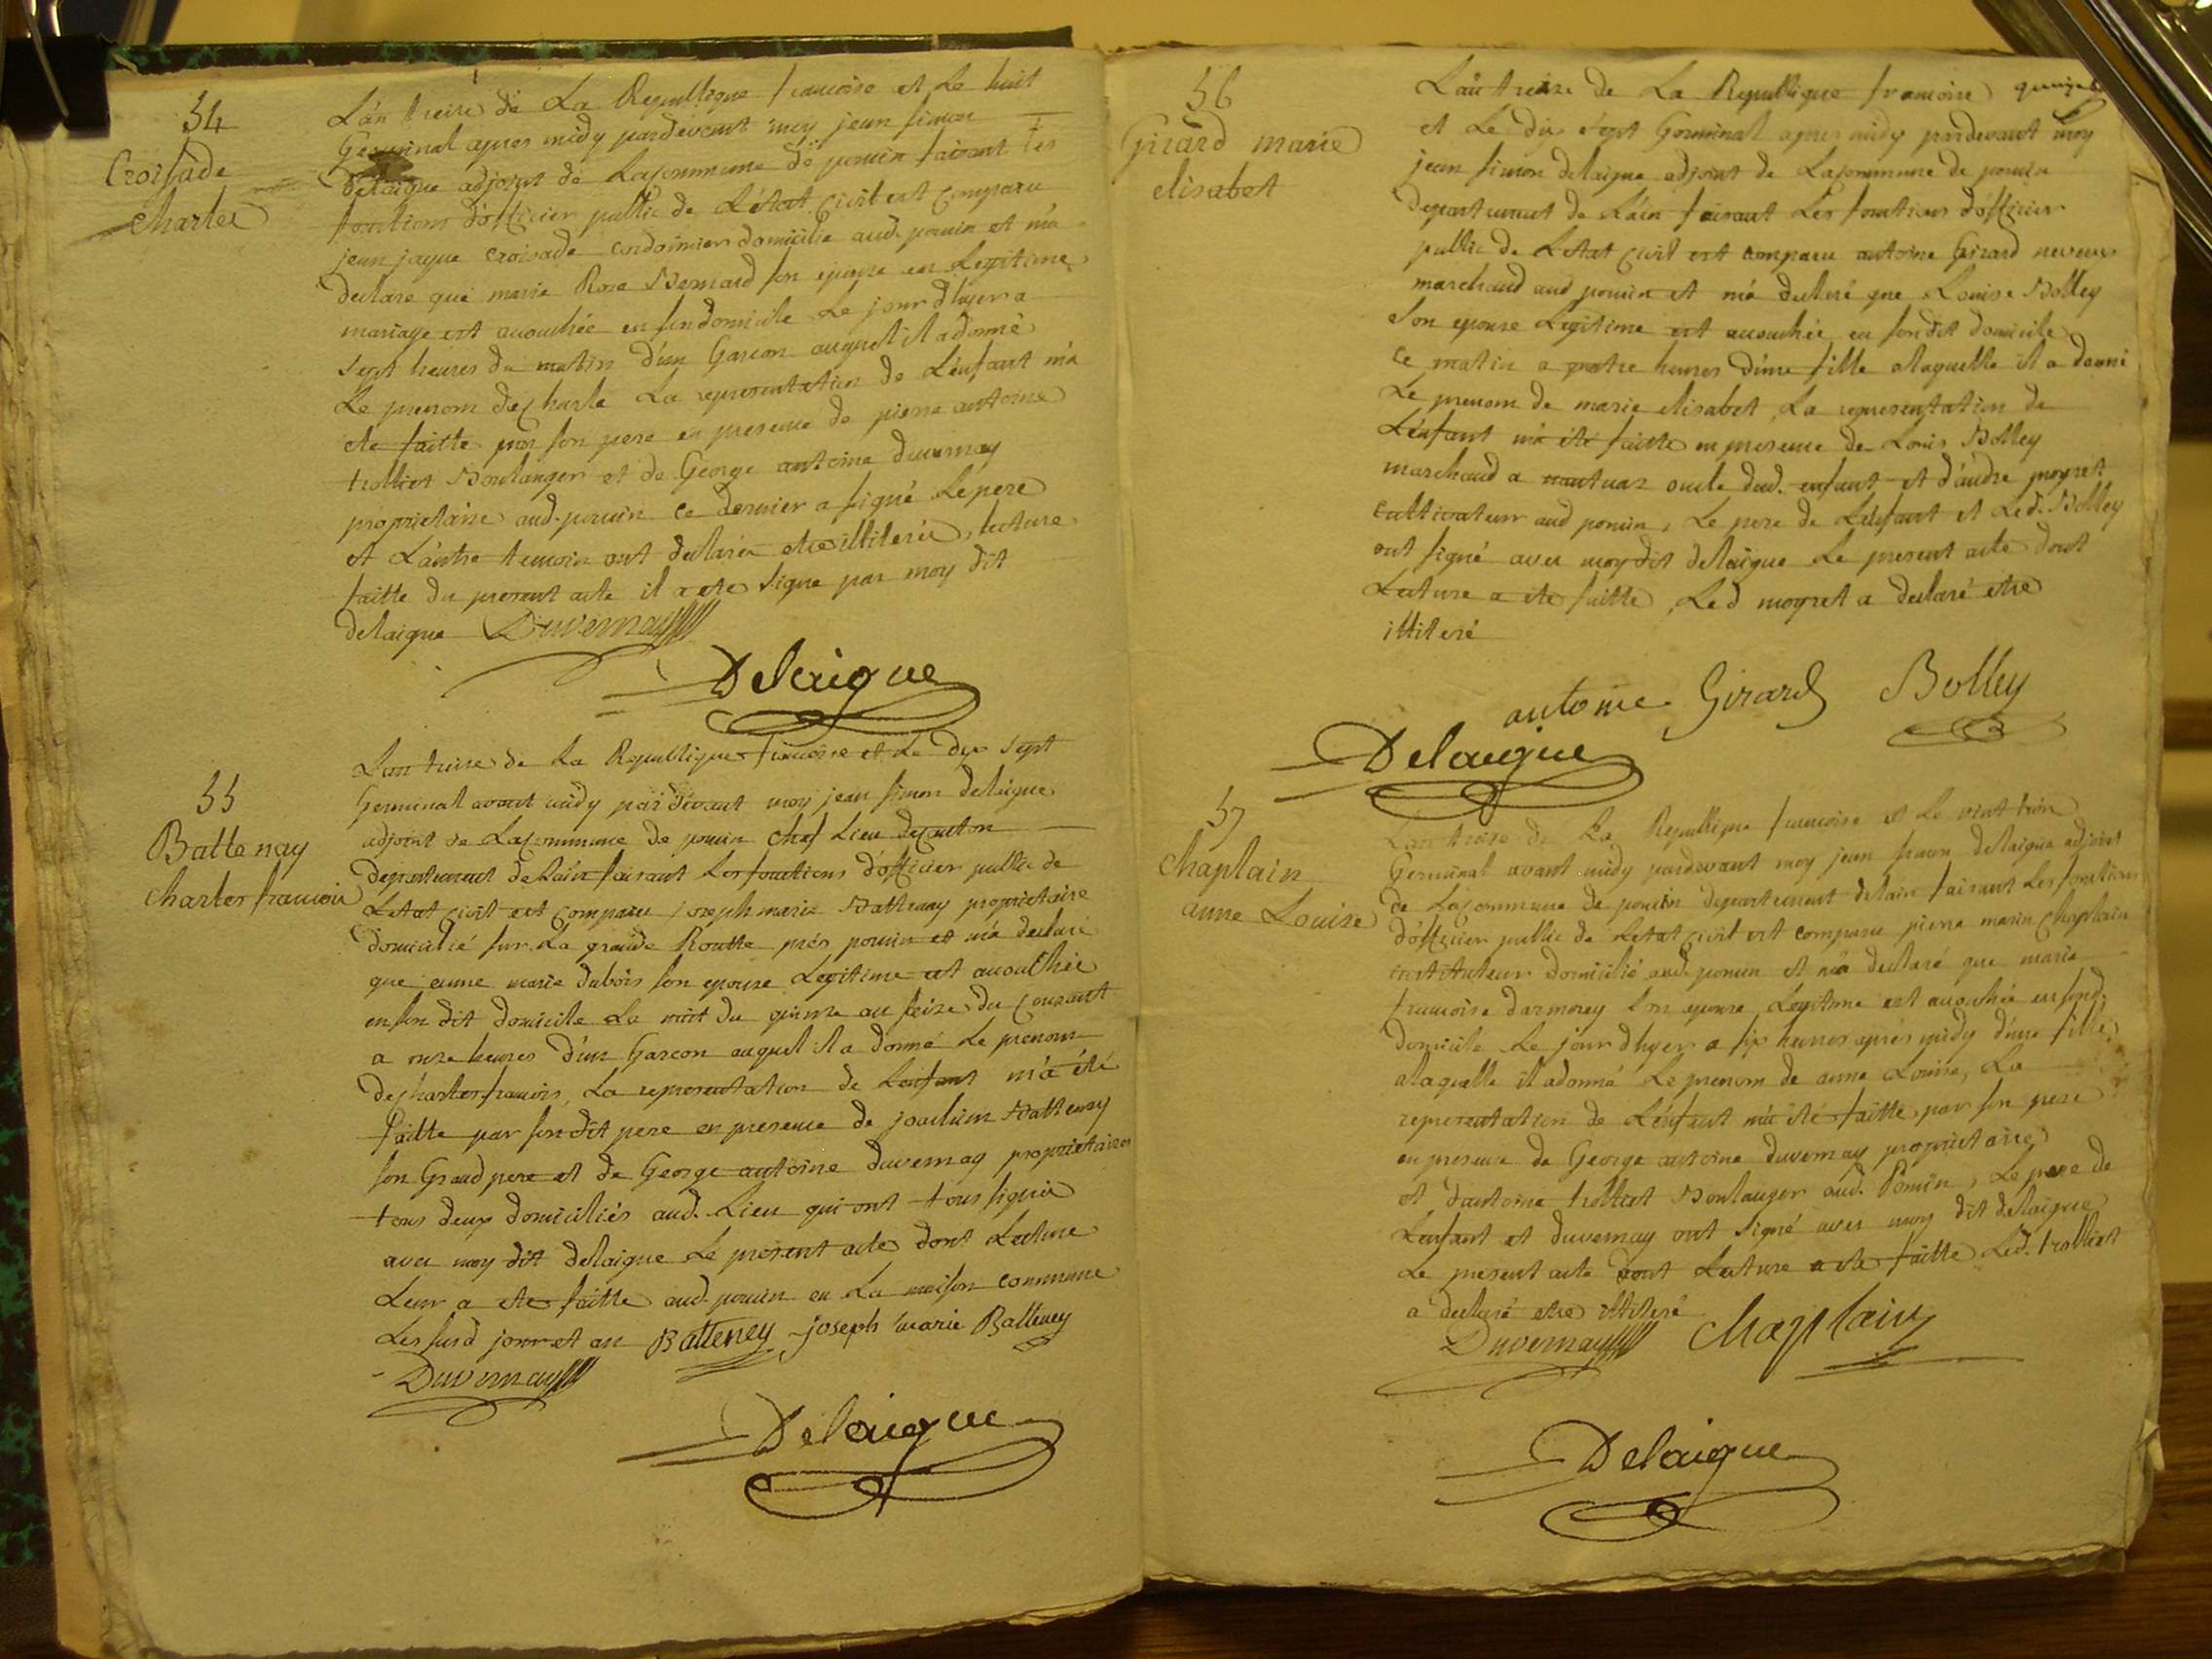 54
Croisade
charles
L'an treize de La Republique francoise et Le huit
Germinal apres midy pardevant moy jean simon
delaigue adjoint de Lacommune de poncin faisant Les
fonctions d'officier public de L'état civil est comparu
jean jaque croisade cordonnier domicilié aud. poncin et m'a
declaré que marie Rose Bernard son epouse en Legitime
mariage est acouchée en son domicile Le jour d'hyer a
sept heures du matin d'un Garcon auquel il a donné
Le prenom de charle La representation de L'enfant m'a
ete faitte par son pere en presence de pierre antoine
trolliet Boulanger et de George antoine duvernay
proprietaire aud. poncin ce dernier a signé Le pere
et L'autre temoin ont declarés etre illiterés, lecture
faitte du present acte il a ete signé par moy dit
delaigue Duvernay
Delaigue
55
Battenay
charles francois
L'an treize de La Republique francoise et Le dix sept
Germinal avant midy pardevant moy jean simon delaigue
adjoint de Lacommune de poncin chef Lieu de canton
departement de L'ain faisant Les fonctions d'officier public de
Letat civil est comparu joseph marie Battenay proprietaire
domicilié sur La grande Routte prés poncin et m'a declaré
que anne marie dubois son epouse Legitime est acouchée
en son dit domicile La nuit du quinze au seize du courant
a onze heures d'un Garcon auquel il a donné Le prenom
de charles francois, La representation de Lenfant m'a été
faitte par son dit pere en presence de joachim Battenay
son Grand pere et de George antoine duvernay proprietaires
tous deux domiciliés aud. Lieu qui ont tous signés
avec moy dit delaigue Le present acte dont Lecture
Leur a ete faitte aud. poncin en La maison commune
Les susd jour et an Batteney joseph marie Batteney
Duvernay
Delaigue
56
Girard marie
elisabet
L'an treize de La Republique francoise
et Le dix sept Germinal apres midy pardevant moy
jean simon delaigue adjoint de Lacommune de poncin
departement de L'ain faisant Les fonctions d'officier
public de Letat civil est comparu antoine Girard neveux
marchand aud poncin et m'a declaré que Louise Bolley
son epouse Legitime est acouchée en son dit domicile
ce matin a quatre heures d'une fille a laquelle il a donné
Le prenom de marie elisabet, La representation de
L'enfant m'a été faitte en presence de Louis Bolley
marchand a nantuaz oncle dud. enfant et d'andre moyret
cultivateur aud poncin, Le pere de L'enfant et Led. Bolley
ont signé avec moy dit delaigue Le present acte dont
Lecture a ete faitte, Led moyret a declaré etre
illiteré
antoine Girard Bolley
Delaigue
57
chaplain
anne Louise
L'an treize de La Republique francoise et Le vint trois
Germinal avant midy pardevant moy jean simon delaigue adjoint
de Lacommune de poncin departement de lain faisant Les fonctions
d'officier public de Letat civil est comparu pierre marin chaplain
instituteur domicilié aud. poncin et m'a declaré que marie
francoise darmorey son epouse Legitime est acouchée en sond.
domicile Le jour d'hyer a six heures aprés midy d'une fille
a laquelle il a donné Le prenom de anne Louise, La
representation de L'enfant m'a été faitte par son pere
en presence de George antoine duvernay proprietaire
et d'antoine trolliet Boulanger aud. Poncin, Le pere de
Lenfant et duvernay ont signé avec moy dit delaigue
Le present acte dont Lecture a ete faitte Led. trolliet
a declaré etre illiteré
Duvernay Chaplain
Delaigue